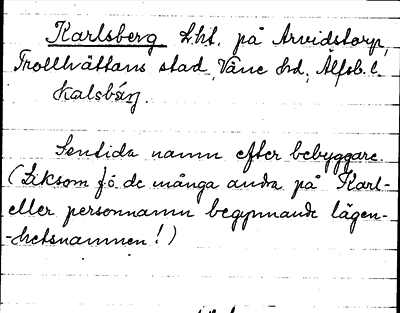 Karlsberg Lht. på Arvidstorp,
Trollhättans stad, Väne hd, Älfsb. l.
kalsbärj.
Sentida namn efter bebyggare.
(Liksom fö de många andra på Karl-
eller personnamn begynnande lägen-
-hetsnamnen!)